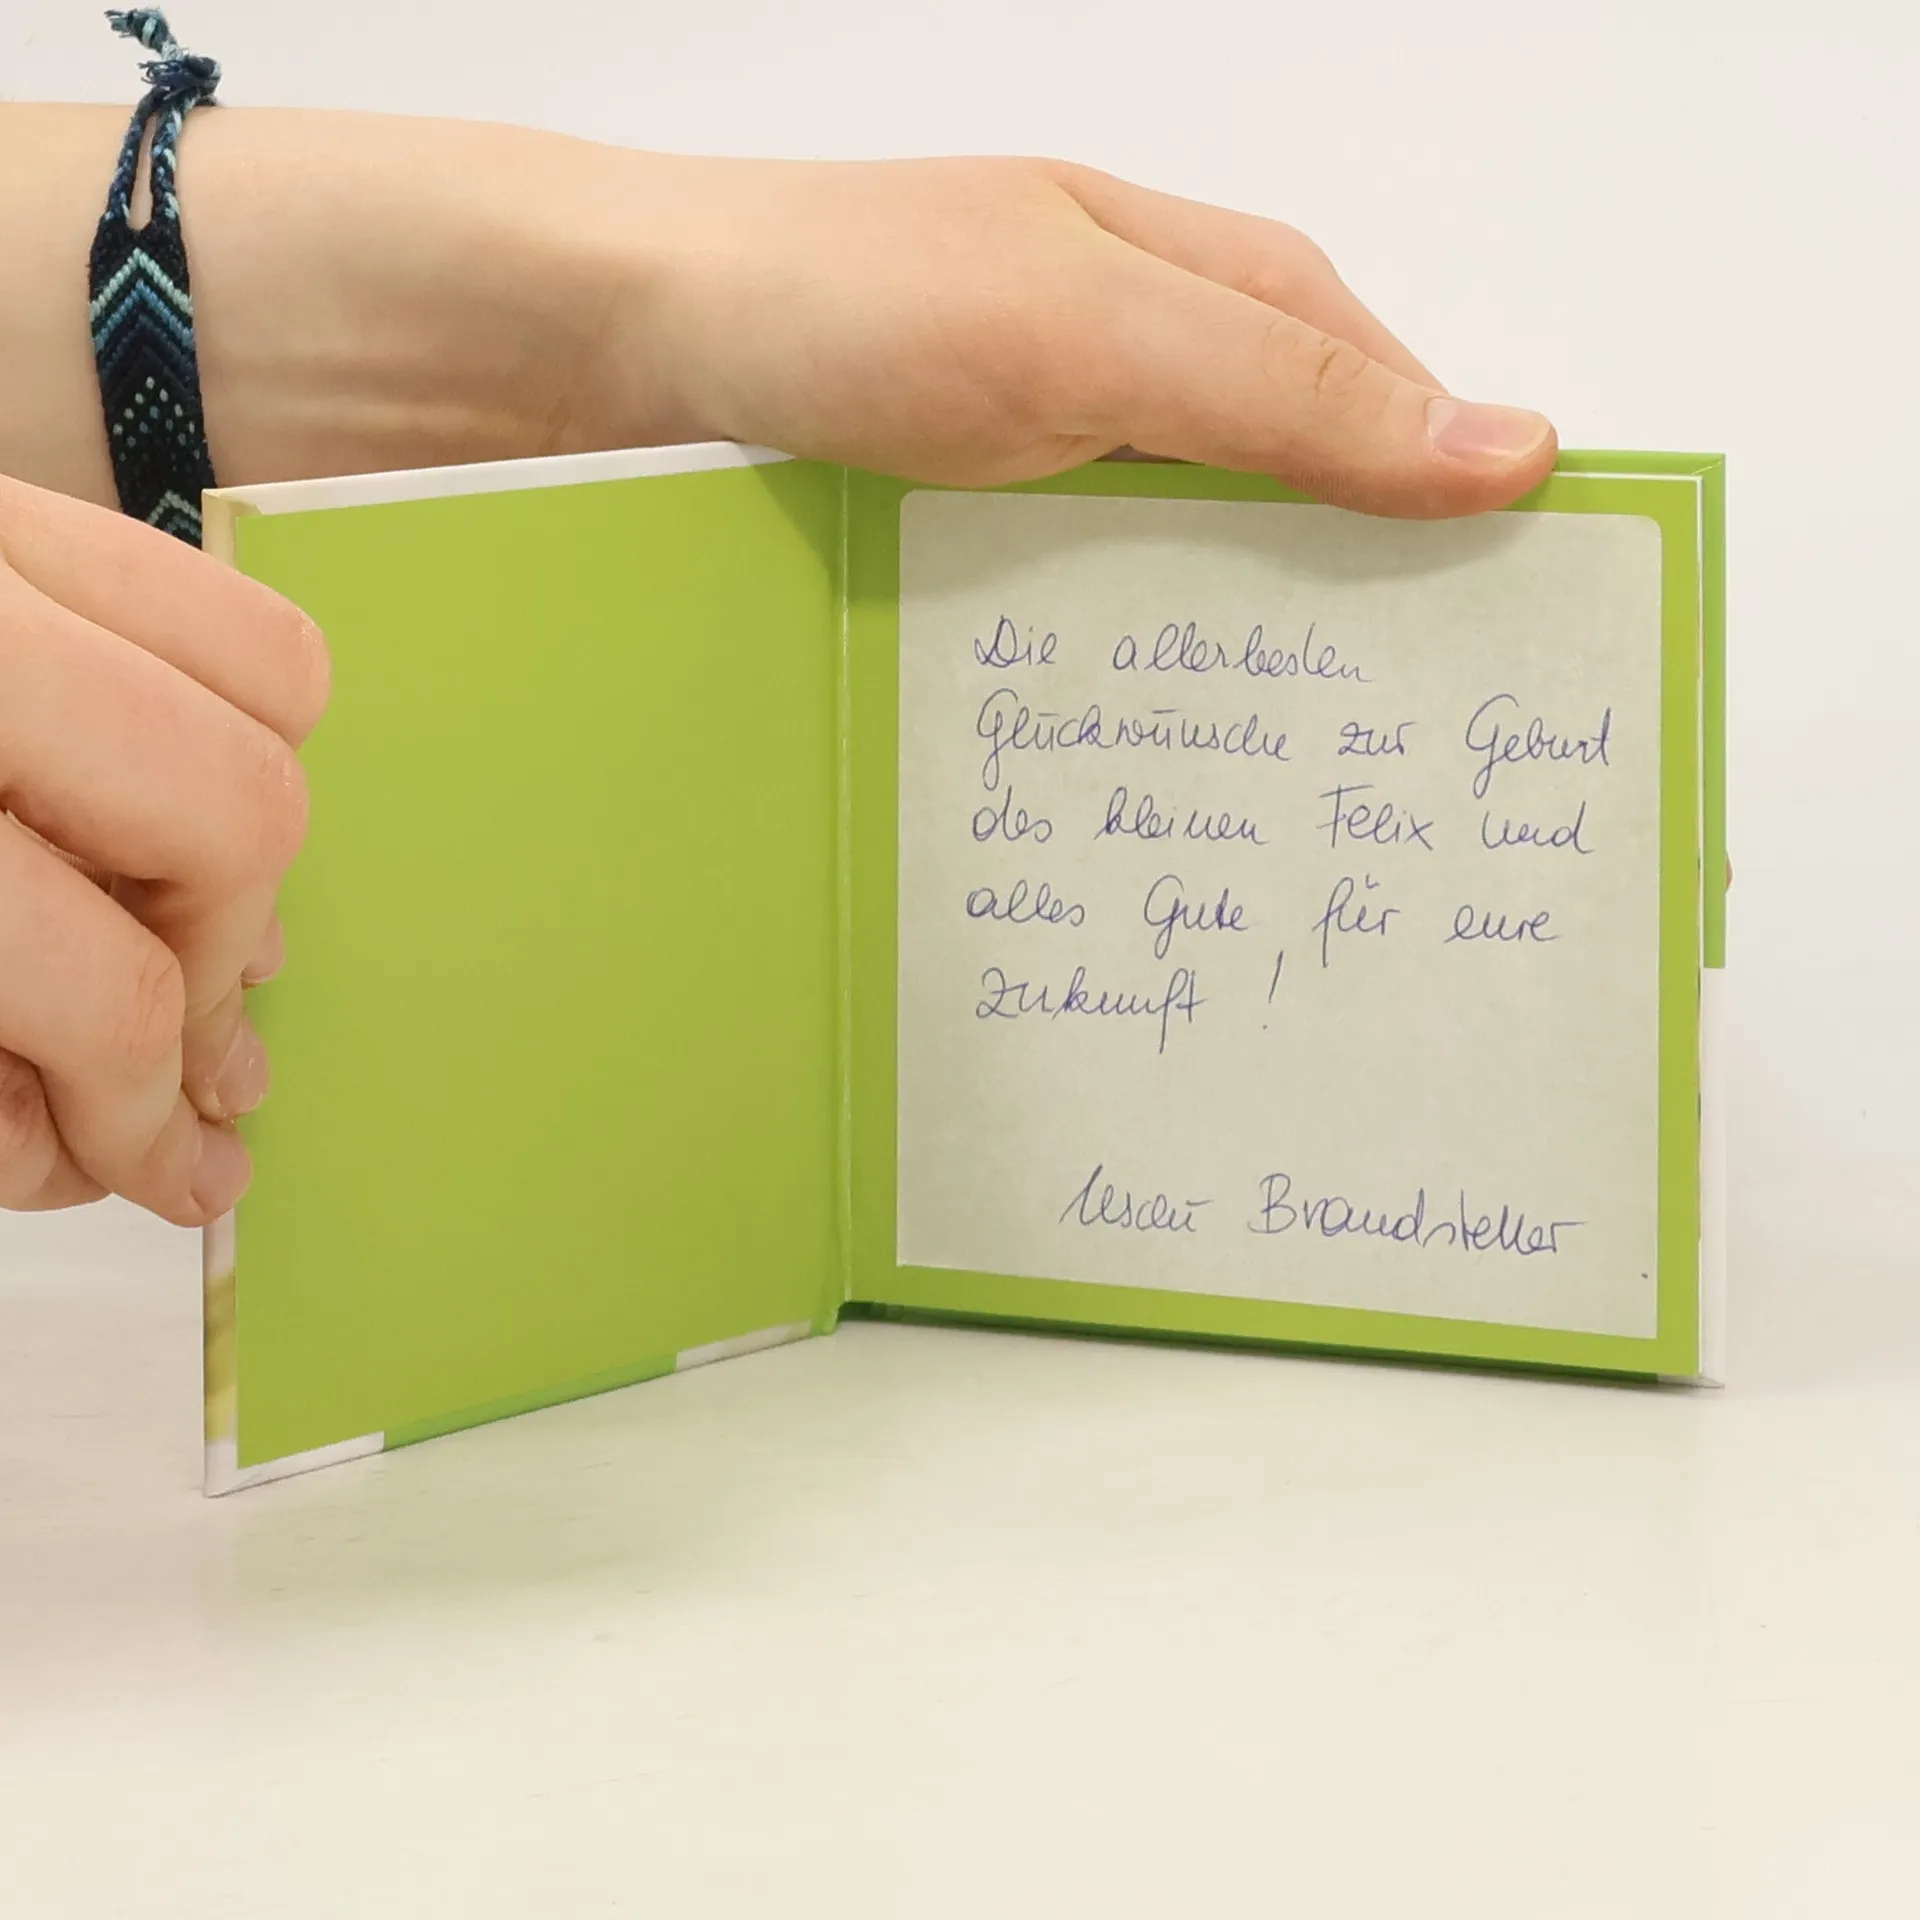 Die allerbesten
Glückwünsche zur Geburt
des kleinen Felix und
alles Gute für eure
Zukunft !
Brandstetter